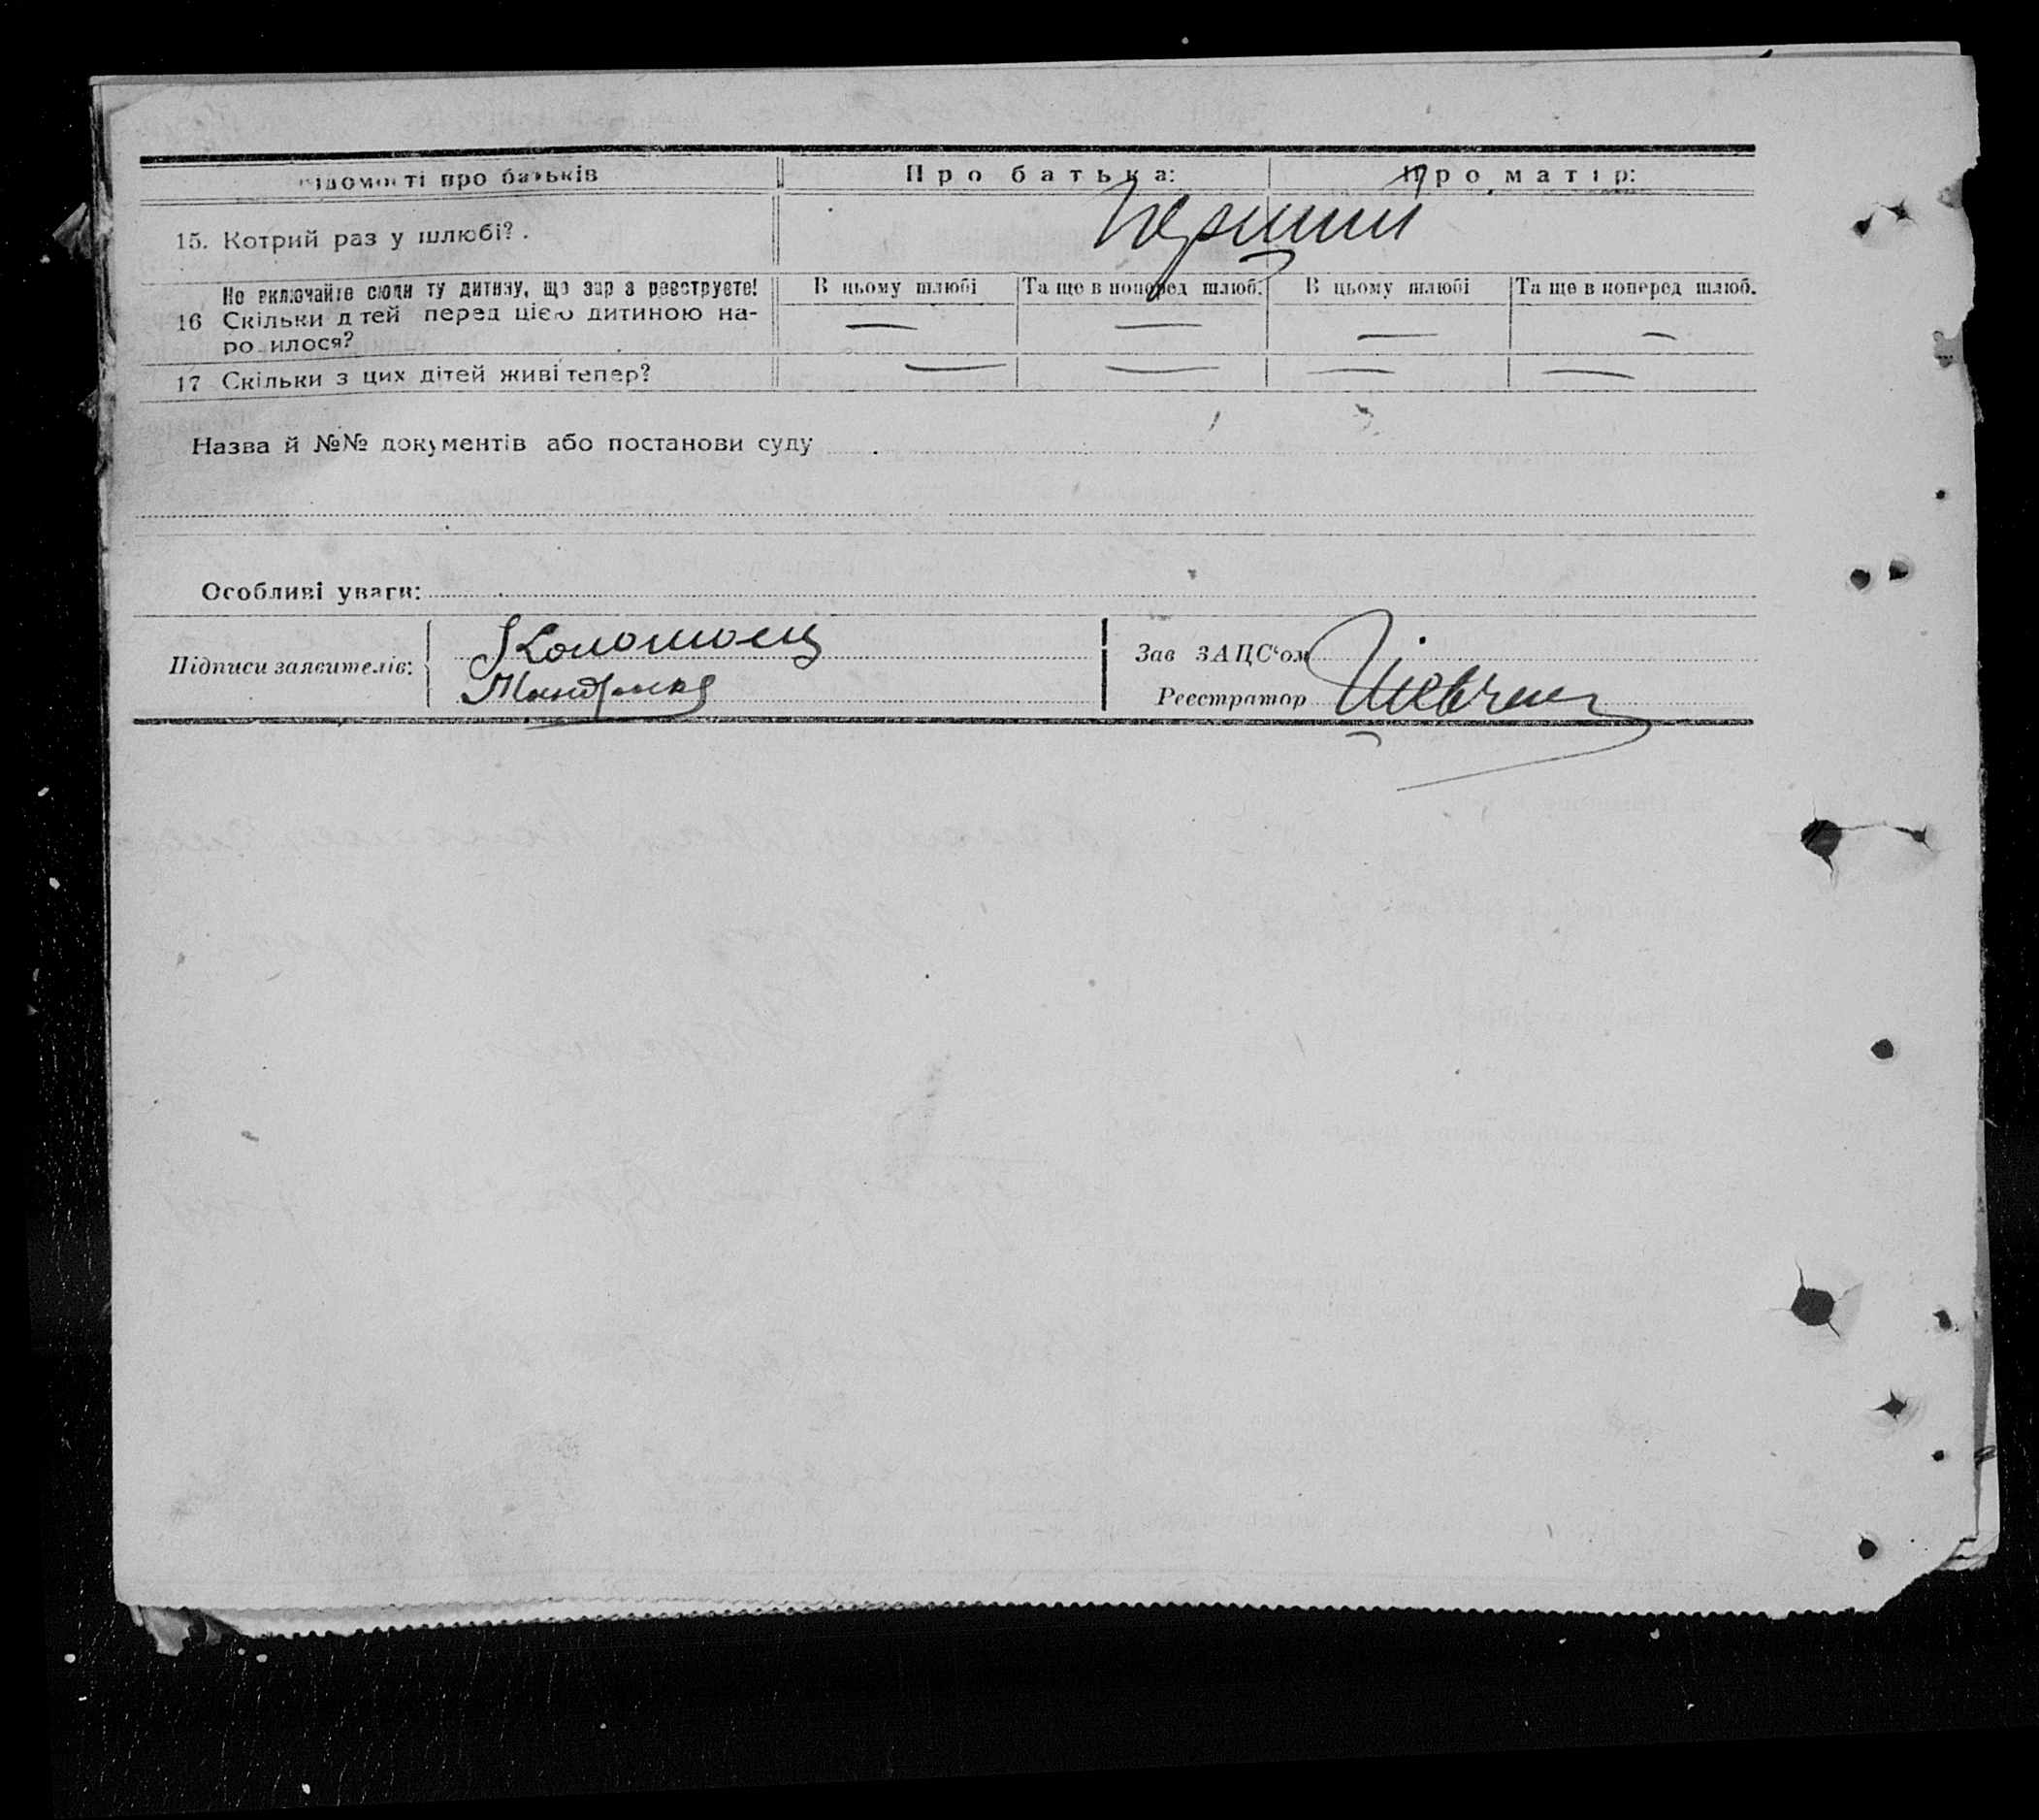 ідомості про батьків Про батька: Про матір:
15. Котрий раз у шлюбі? . Перший
Не включайте сюди ту дитину, що зар з реєструєте! В цьому шлюбі Та ще в поперед шлюб. В цьому шлюбі Та ще в поперед шлюб.
16 Скільки д тей перед цією дитиною на- — — — —
ро илося?
17 Скільки з цих дітей живі тепер? — — — —
Назва й №№ документів або постанови суду
Особливі уваги:
Підписи заявителів: Коломоец
Зав ЗАЦС'ом
Реєстратор Шевчен